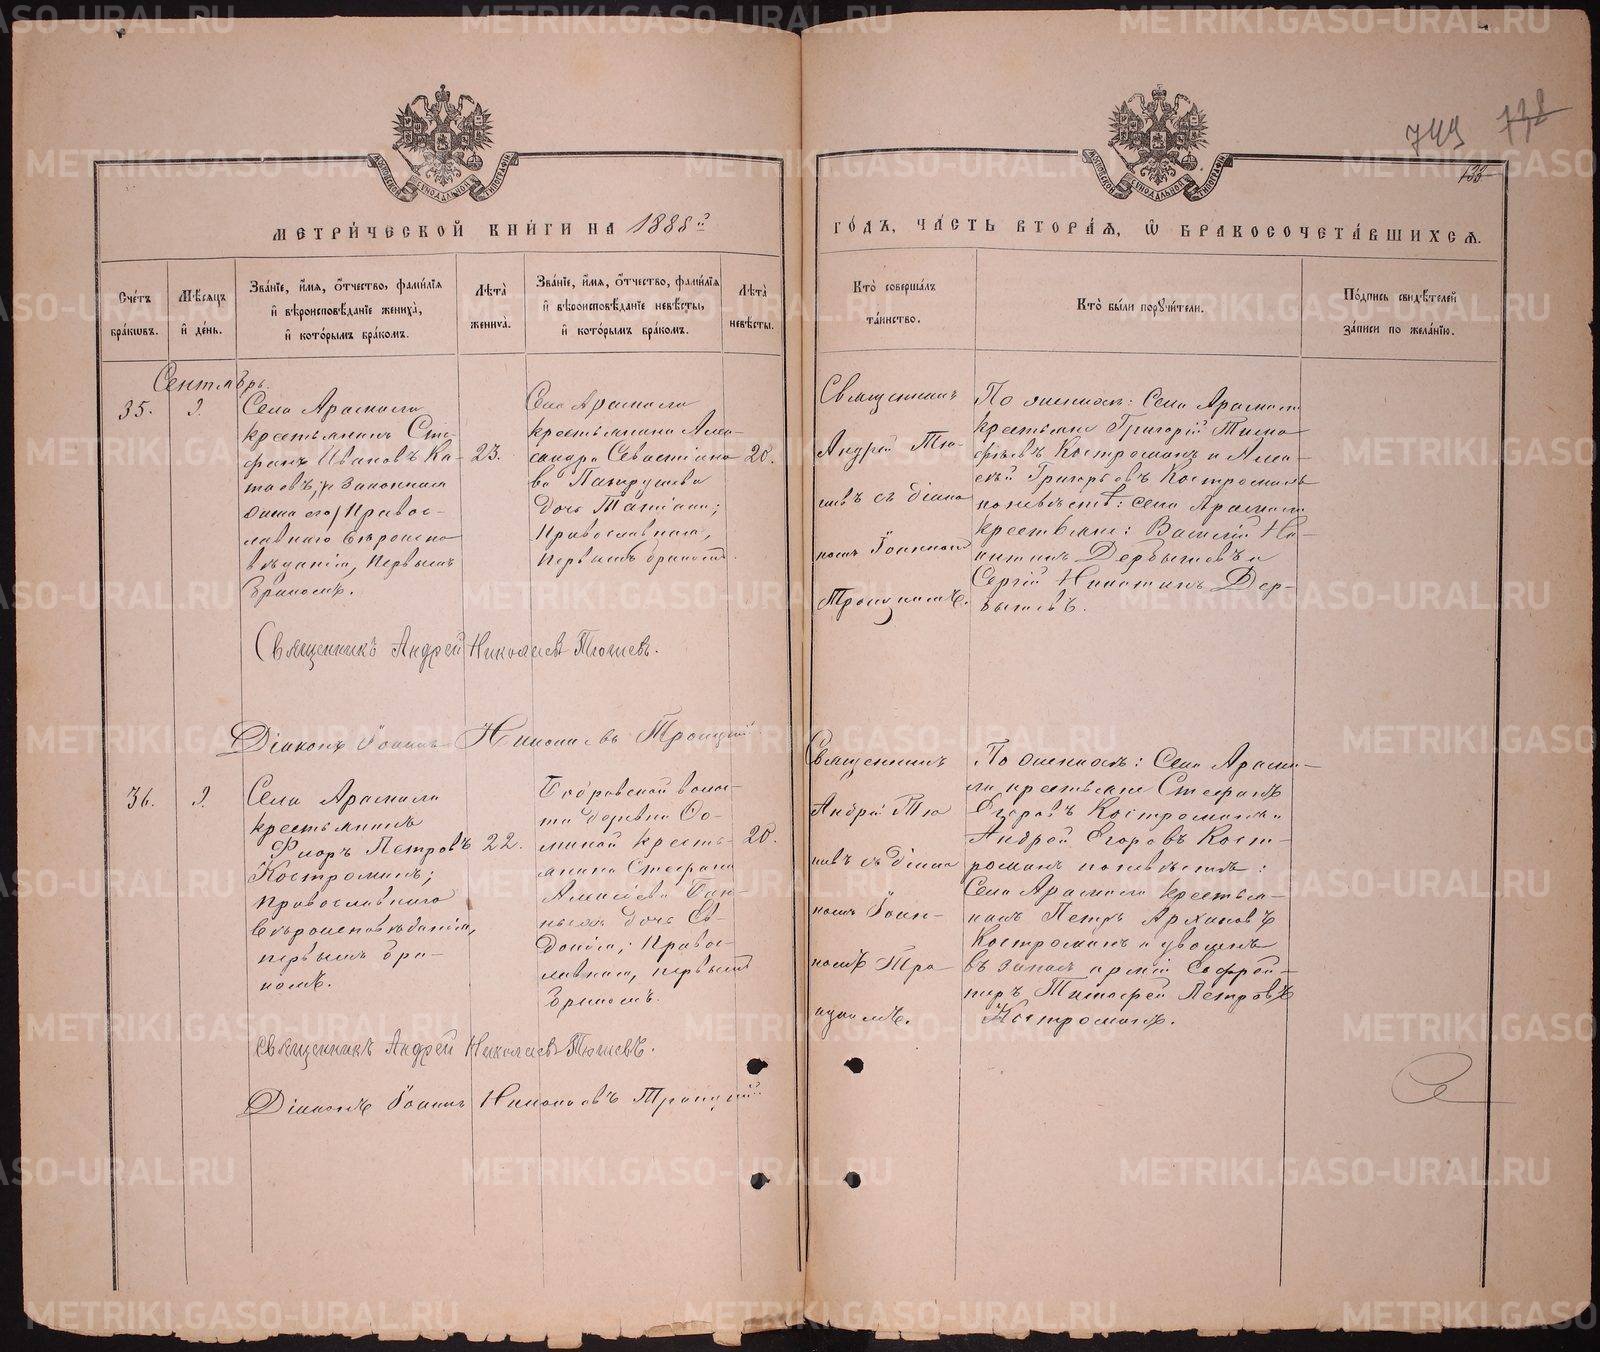 743 738
138
МЕТРИ́ЧЕСКОЙ КНИ́ГИ НА 1888й
ГО́ДЪ, ЧА́СТЬ ВТОРА́Ѧ, Ѡ БРАКОСОЧЕТА́ВШИХСѦ.
Сче́тъ бра́ковъ.
Мѣ́сѧцъ и҆ де́нь.
Зва́нїе, и҆́мѧ, ѻ҆́тчество, фами́лїѧ
и҆ вѣроисповѣ́данїе жениха̀,
и҆ кото́рымъ бра́комъ.
Лѣта̀ жениха̀.
Зва́нїе, и҆́мѧ, ѻ҆́тчество, фами́лїѧ
и҆ вѣроисповѣ́данїе невѣ́сты,
и҆ кото́рымъ бра́комъ.
Лѣта̀ невѣ́сты.
Кто̀ соверша́лъ та́инство.
Кто̀ бы́ли порꙋчи́тели.
По́дпись свидѣ́телей
за́писи по жела́нїю.
Сентябрь.
35. 9.
Села Арамиля
крестьянинъ Сте-
фанъ Ивановъ Ка-
таевъ, /незаконная
его/ Правос-
лавнаго вѣроиспо-
вѣданія, первымъ
бракомъ.
23.
Села Арамиля
крестьянина Алек-
сандра Севастіано-
ва Патрушева
дочь Татіана;
Православная,
первымъ бракомъ.
20.
Священникъ
Андрей Тю-
шевъ съ діако-
номъ Іоанномъ
Троицкимъ.
По женихѣ: села Арамиля
крестьяне Григорій Тимо-
фѣевъ Костроминъ и Але-
ксѣй Григорьевъ Костроминъ
по невѣстѣ: села Арамиля
крестьяне: Василій Ни-
китинъ Дербышевъ и
Сергій Никитинъ Дер-
бышевъ.
Священникъ Андрей Николаевъ Тюшевъ.
Діаконъ Іоаннъ Николаевъ Троицкій
36. 9.
Села Арамиля
крестьянинъ
Флоръ Петровъ
Костроминъ;
православнаго
вѣроисповѣданія,
первымъ бра-
комъ.
22.
Бобровской волос-
ти деревни Фо-
миной кресть-
янина Стефана
Алексѣева Бан-
ныхъ дочь Ев-
докія; Правос-
лавная, первымъ
бракомъ.
20.
Священникъ
Андрей Тю
шевъ съ діако
номъ Іоан-
номъ Тро
ицкимъ.
По женихѣ: Села Арами-
ля крестьяне Стефанъ
Егоровъ Костроминъ и
Андрей Егоровъ Кост-
роминъ по невѣстѣ:
Села Арамиля крестья-
нинъ Петръ Архиповъ
Костроминъ и уволен.
въ запасъ арміи Ефрей-
торъ Тимофей Петровъ
Костроминъ.
Священникъ Андрей Николаевъ Тюшевъ.
Діаконъ Іоаннъ Николаевъ Троицкій
METRIKI.GASO-URAL.RU